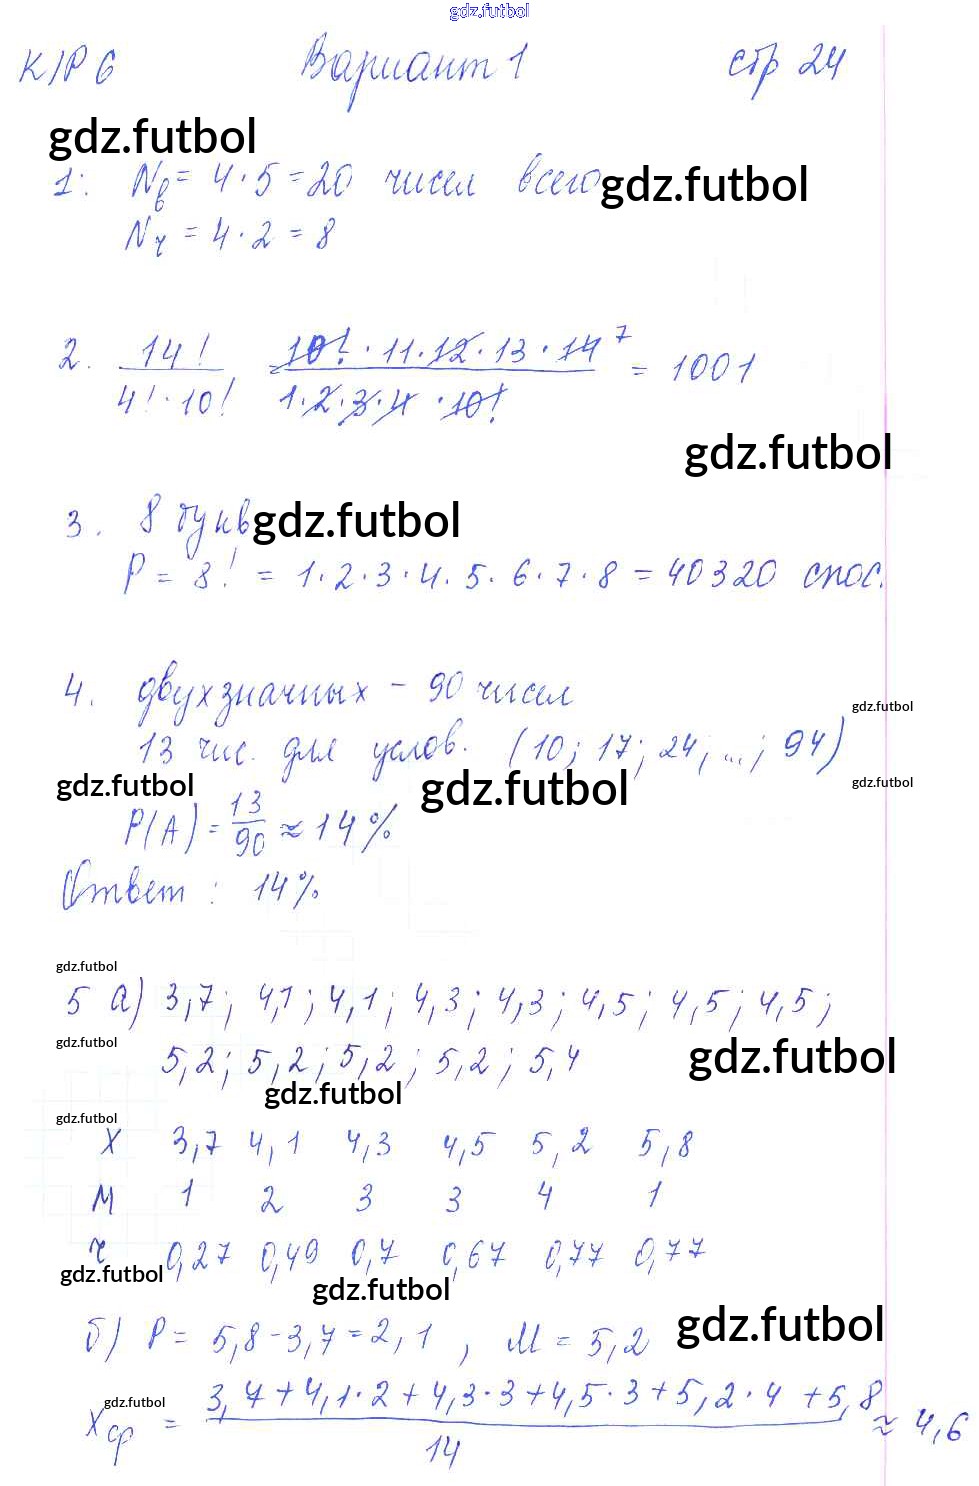 gdz.futbol
К/Р 6 Вариант 1 стр 24
gdz.futbol
1: Nв = 4 · 5 = 20 чисел всего gdz.futbol
Nч = 4 · 2 = 8
2. 14! / 4! · 10! 10! · 11 · 12 · 13 · 14 7 / 1 · 2 · 3 · 4 · 10! = 1001
gdz.futbol
3. 8 букв gdz.futbol
P = 8! = 1 · 2 · 3 · 4 · 5 · 6 · 7 · 8 = 40320 спос.
4. двухзначных – 90 чисел
gdz.futbol
13 чис. для услов. (10; 17; 24; ...; 94)
gdz.futbol gdz.futbol gdz.futbol
P(A) = 13/90 ≈ 14%
Ответ: 14%
gdz.futbol
5 а) 3,7; 4,1; 4,1; 4,3; 4,3; 4,5; 4,5; 4,5;
gdz.futbol
5,2; 5,2; 5,2; 5,2; 5,4 gdz.futbol
gdz.futbol
gdz.futbol
X 3,7 4,1 4,3 4,5 5,2 5,8
M 1 2 3 3 4 1
ч 0,27 0,49 0,7 0,67 0,77 0,77
gdz.futbol gdz.futbol
б) P = 5,8 - 3,7 = 2,1, M = 5,2 gdz.futbol
gdz.futbol
Xср = 3,7 + 4,1 · 2 + 4,3 · 3 + 4,5 · 3 + 5,2 · 4 + 5,8 / 14 ≈ 4,6